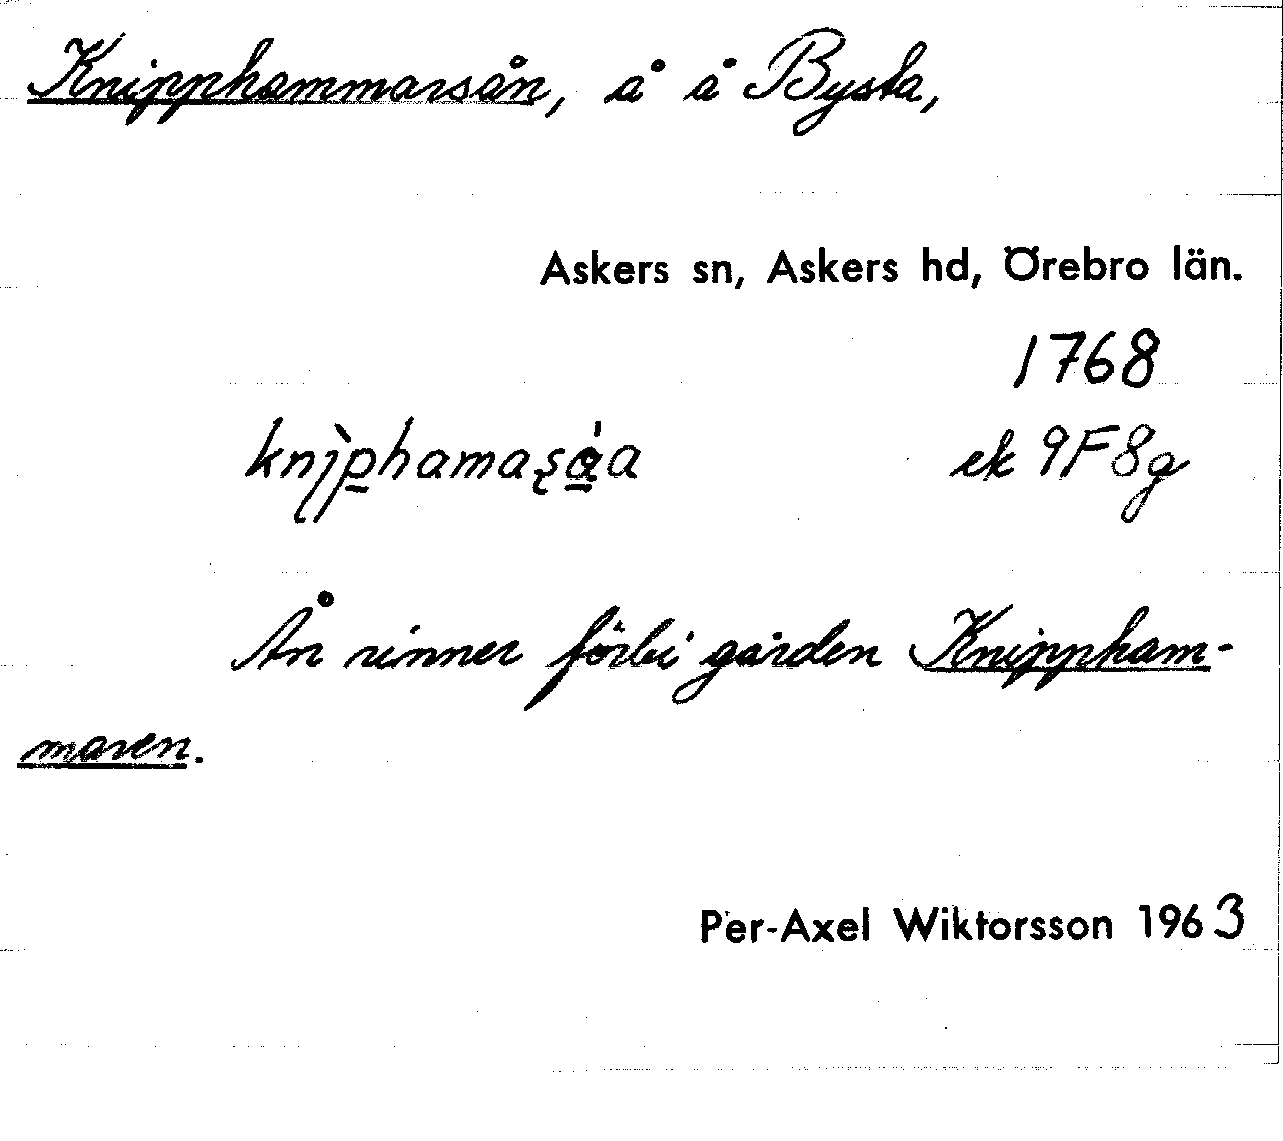 Knipphammarsån, å å Bysta,
Askers sn, Askers hd, Örebro län.
1768
ek 9F8g
Ån rinner förbi gården Knippham-
maren.
Per-Axel Wiktorsson 1963